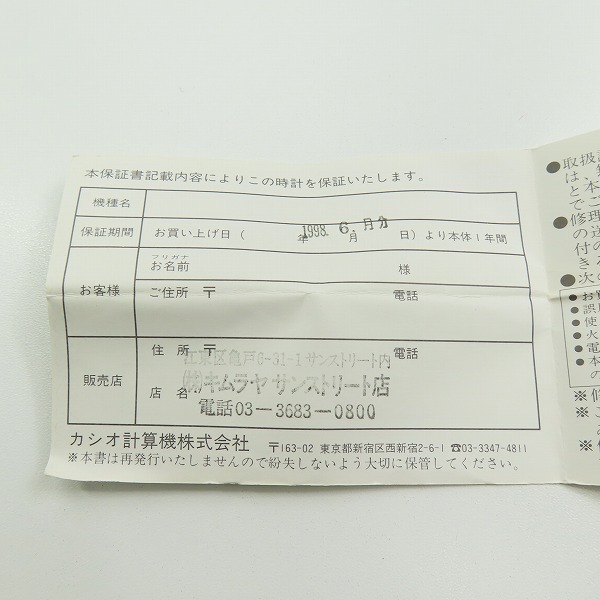 本保証書記載内容によりこの時計を保証いたします。
機種名
保証期間 お買い上げ日( 1998. 6.月分 年 月 日)より本体1年間
フリガナ
お名前 様
お客様 ご住所 〒 電話
住所 〒 電話
江東区亀戸6-31-1 サンストリート内
販売店 店名 (株)キムラヤ サンストリート店
電話03-3683-0800
カシオ計算機株式会社 〒163-02 東京都新宿区西新宿2-6-1 ☎03-3347-4811
※本書は再発行いたしませんので紛失しないよう大切に保管してください。
●取扱
は、
と本
でご
●修理
の送
付の
き
●次の
●お買
●誤
●使
●火
●電
●本
の
※修
※こ
の
※